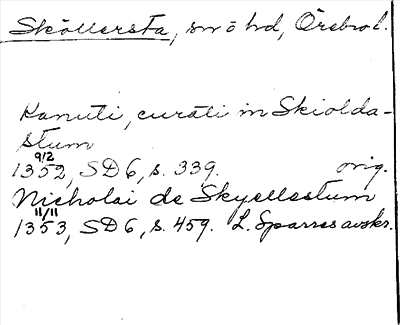 Sköllersta, sn o hd, Örebro l.
Kanuti, curati in Skiolda-
stum
9/2
1352, SD 6, s. 339. orig.
Nicholai de Skyellestum
11/11
1353, SD 6, s. 459. L. Sparres avskr.